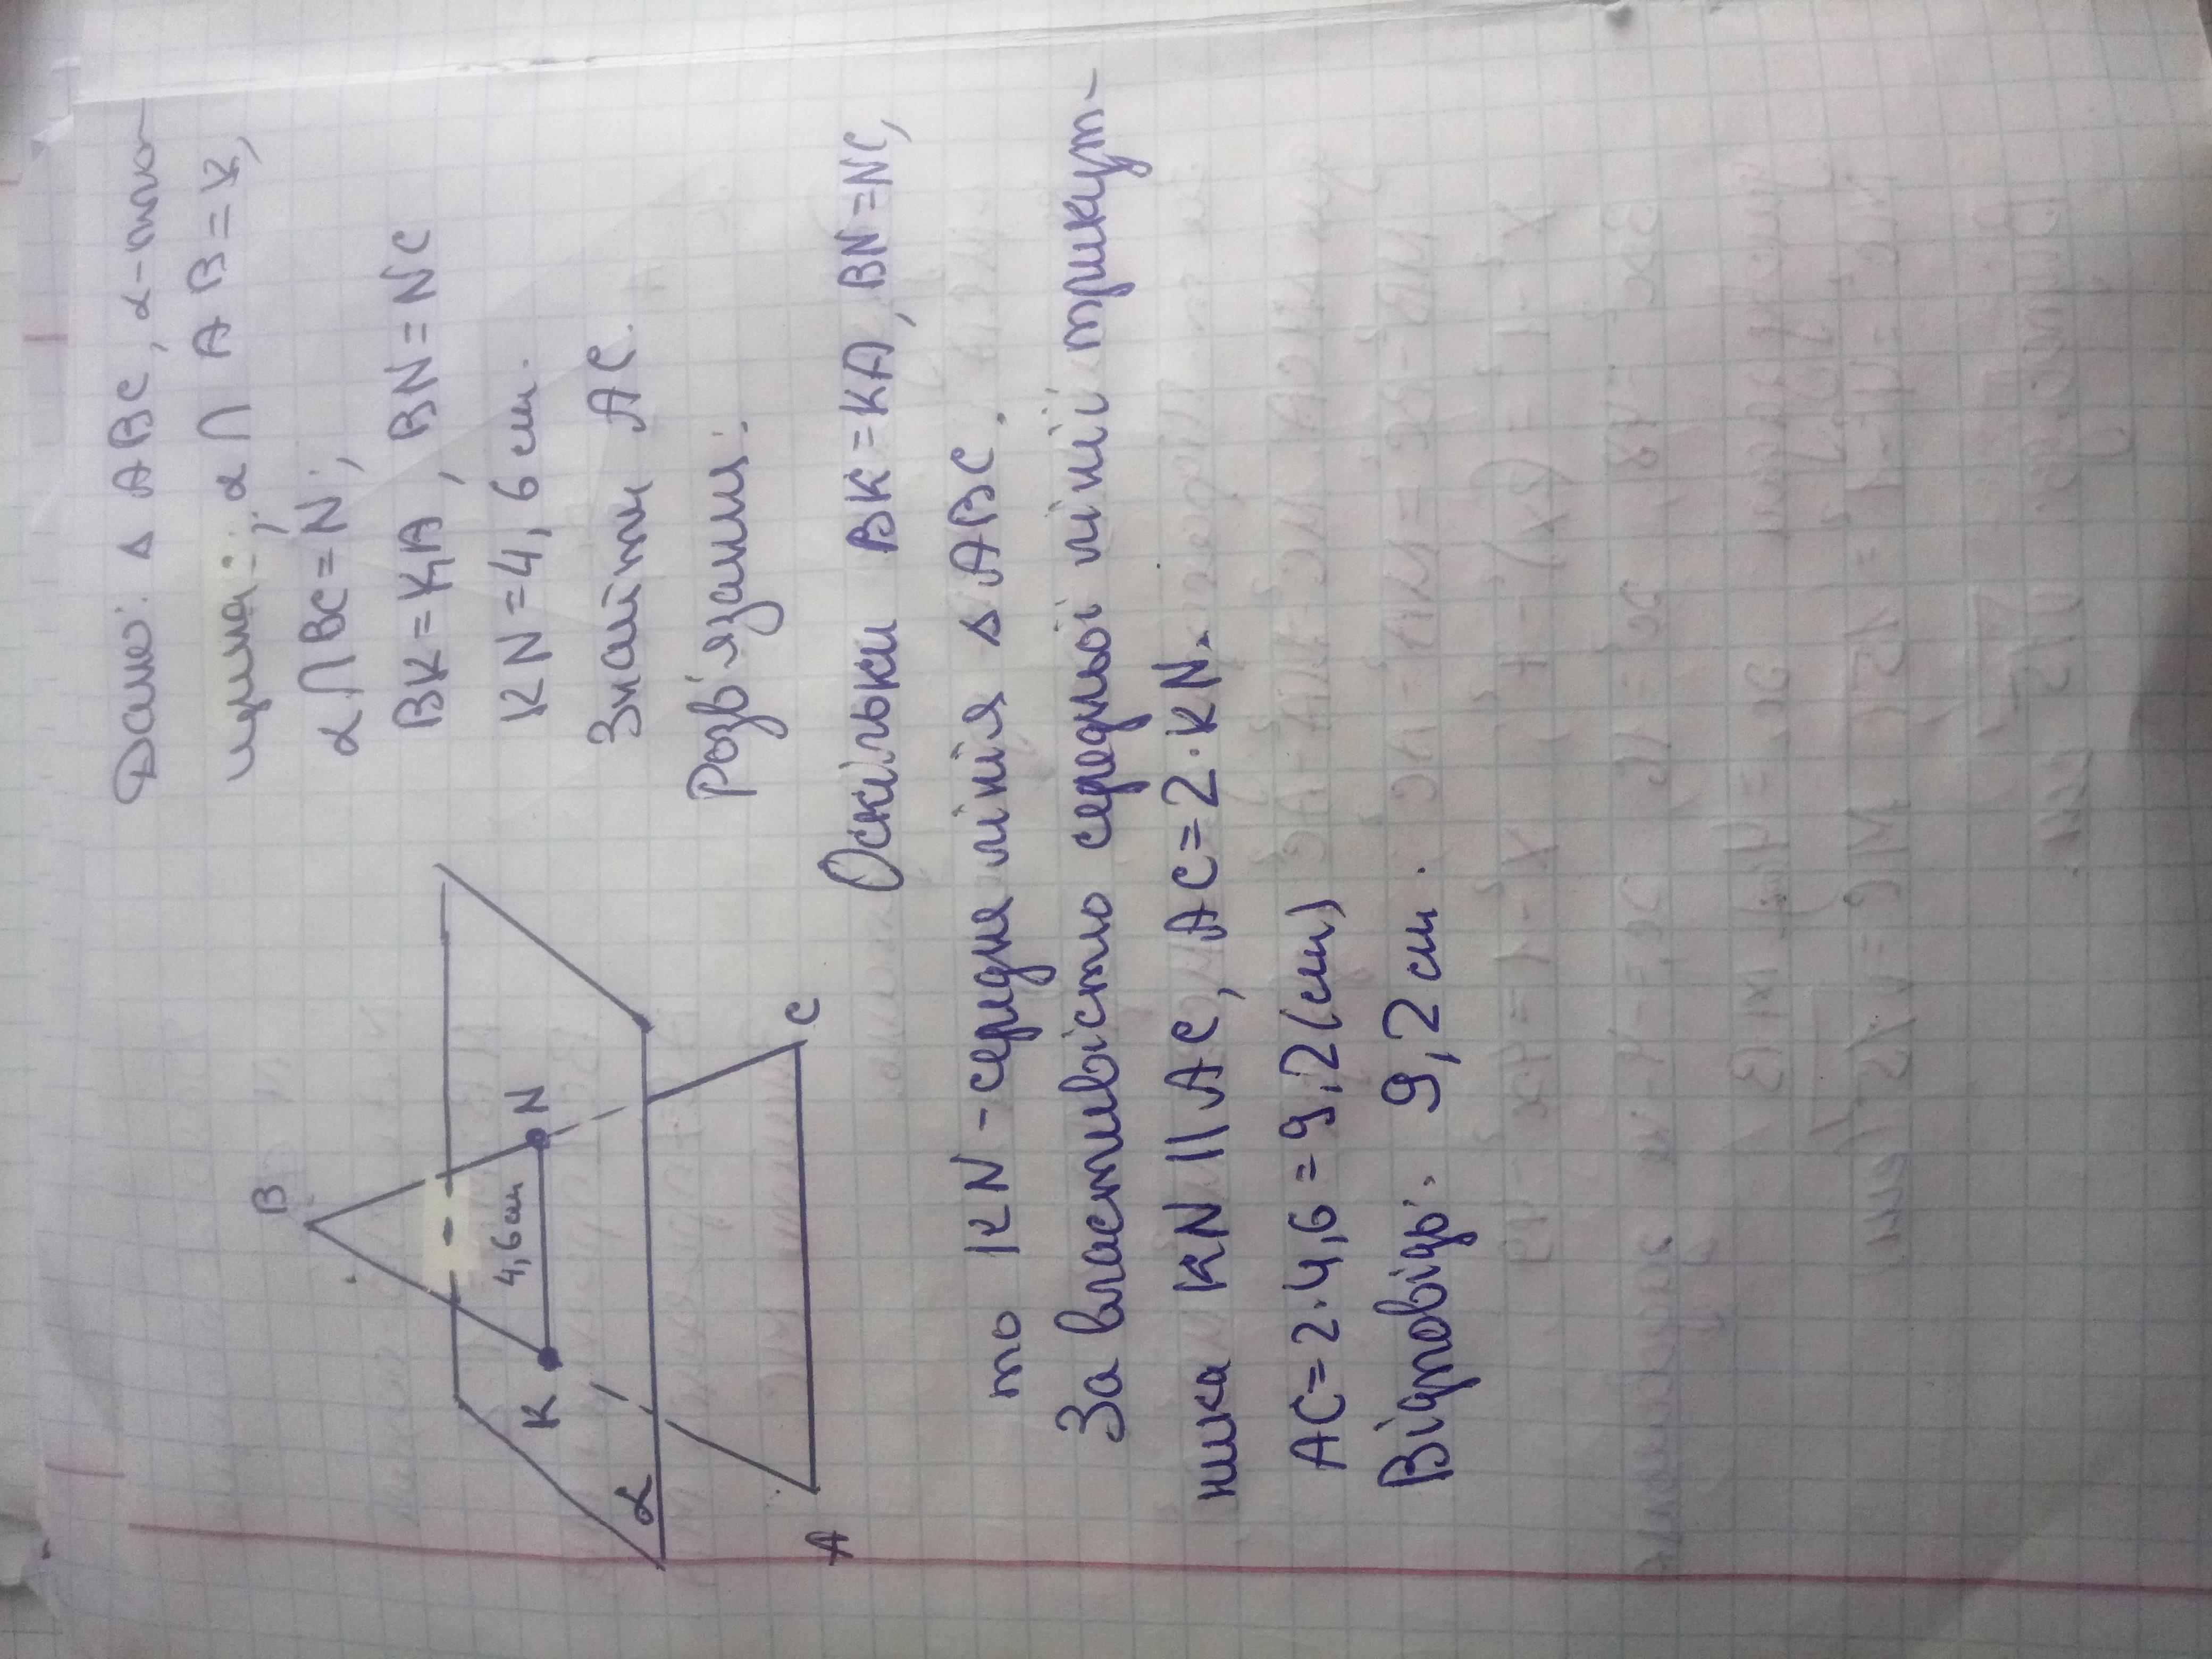 Дано: Δ ABC, α-пло-
щина; α ∩ AB = K,
α ∩ BC = N;
BK = KA, BN = NC
KN = 4,6 см.
Знайти AC.
Розв'язання:
B
K
4,6 см
N
α
A
C
Оскільки BK = KA, BN = NC,
то KN - середня лінія Δ ABC.
За властивістю середньої лінії трикут-
ника KN || AC, AC = 2 · KN.
AC = 2 · 4,6 = 9,2 (см)
Відповідь: 9,2 см.